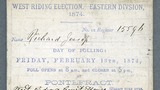 WEST RIDING ELECTION. EASTERN DIVISION,
1874.
No. on Register 15596
Richard
DAY OF POLLING:
FRIDAY, FEBRUARY 13TH, 1874.
POLL OPENS AT 8 AND CLOSES AT 5.
PONTEFRACT